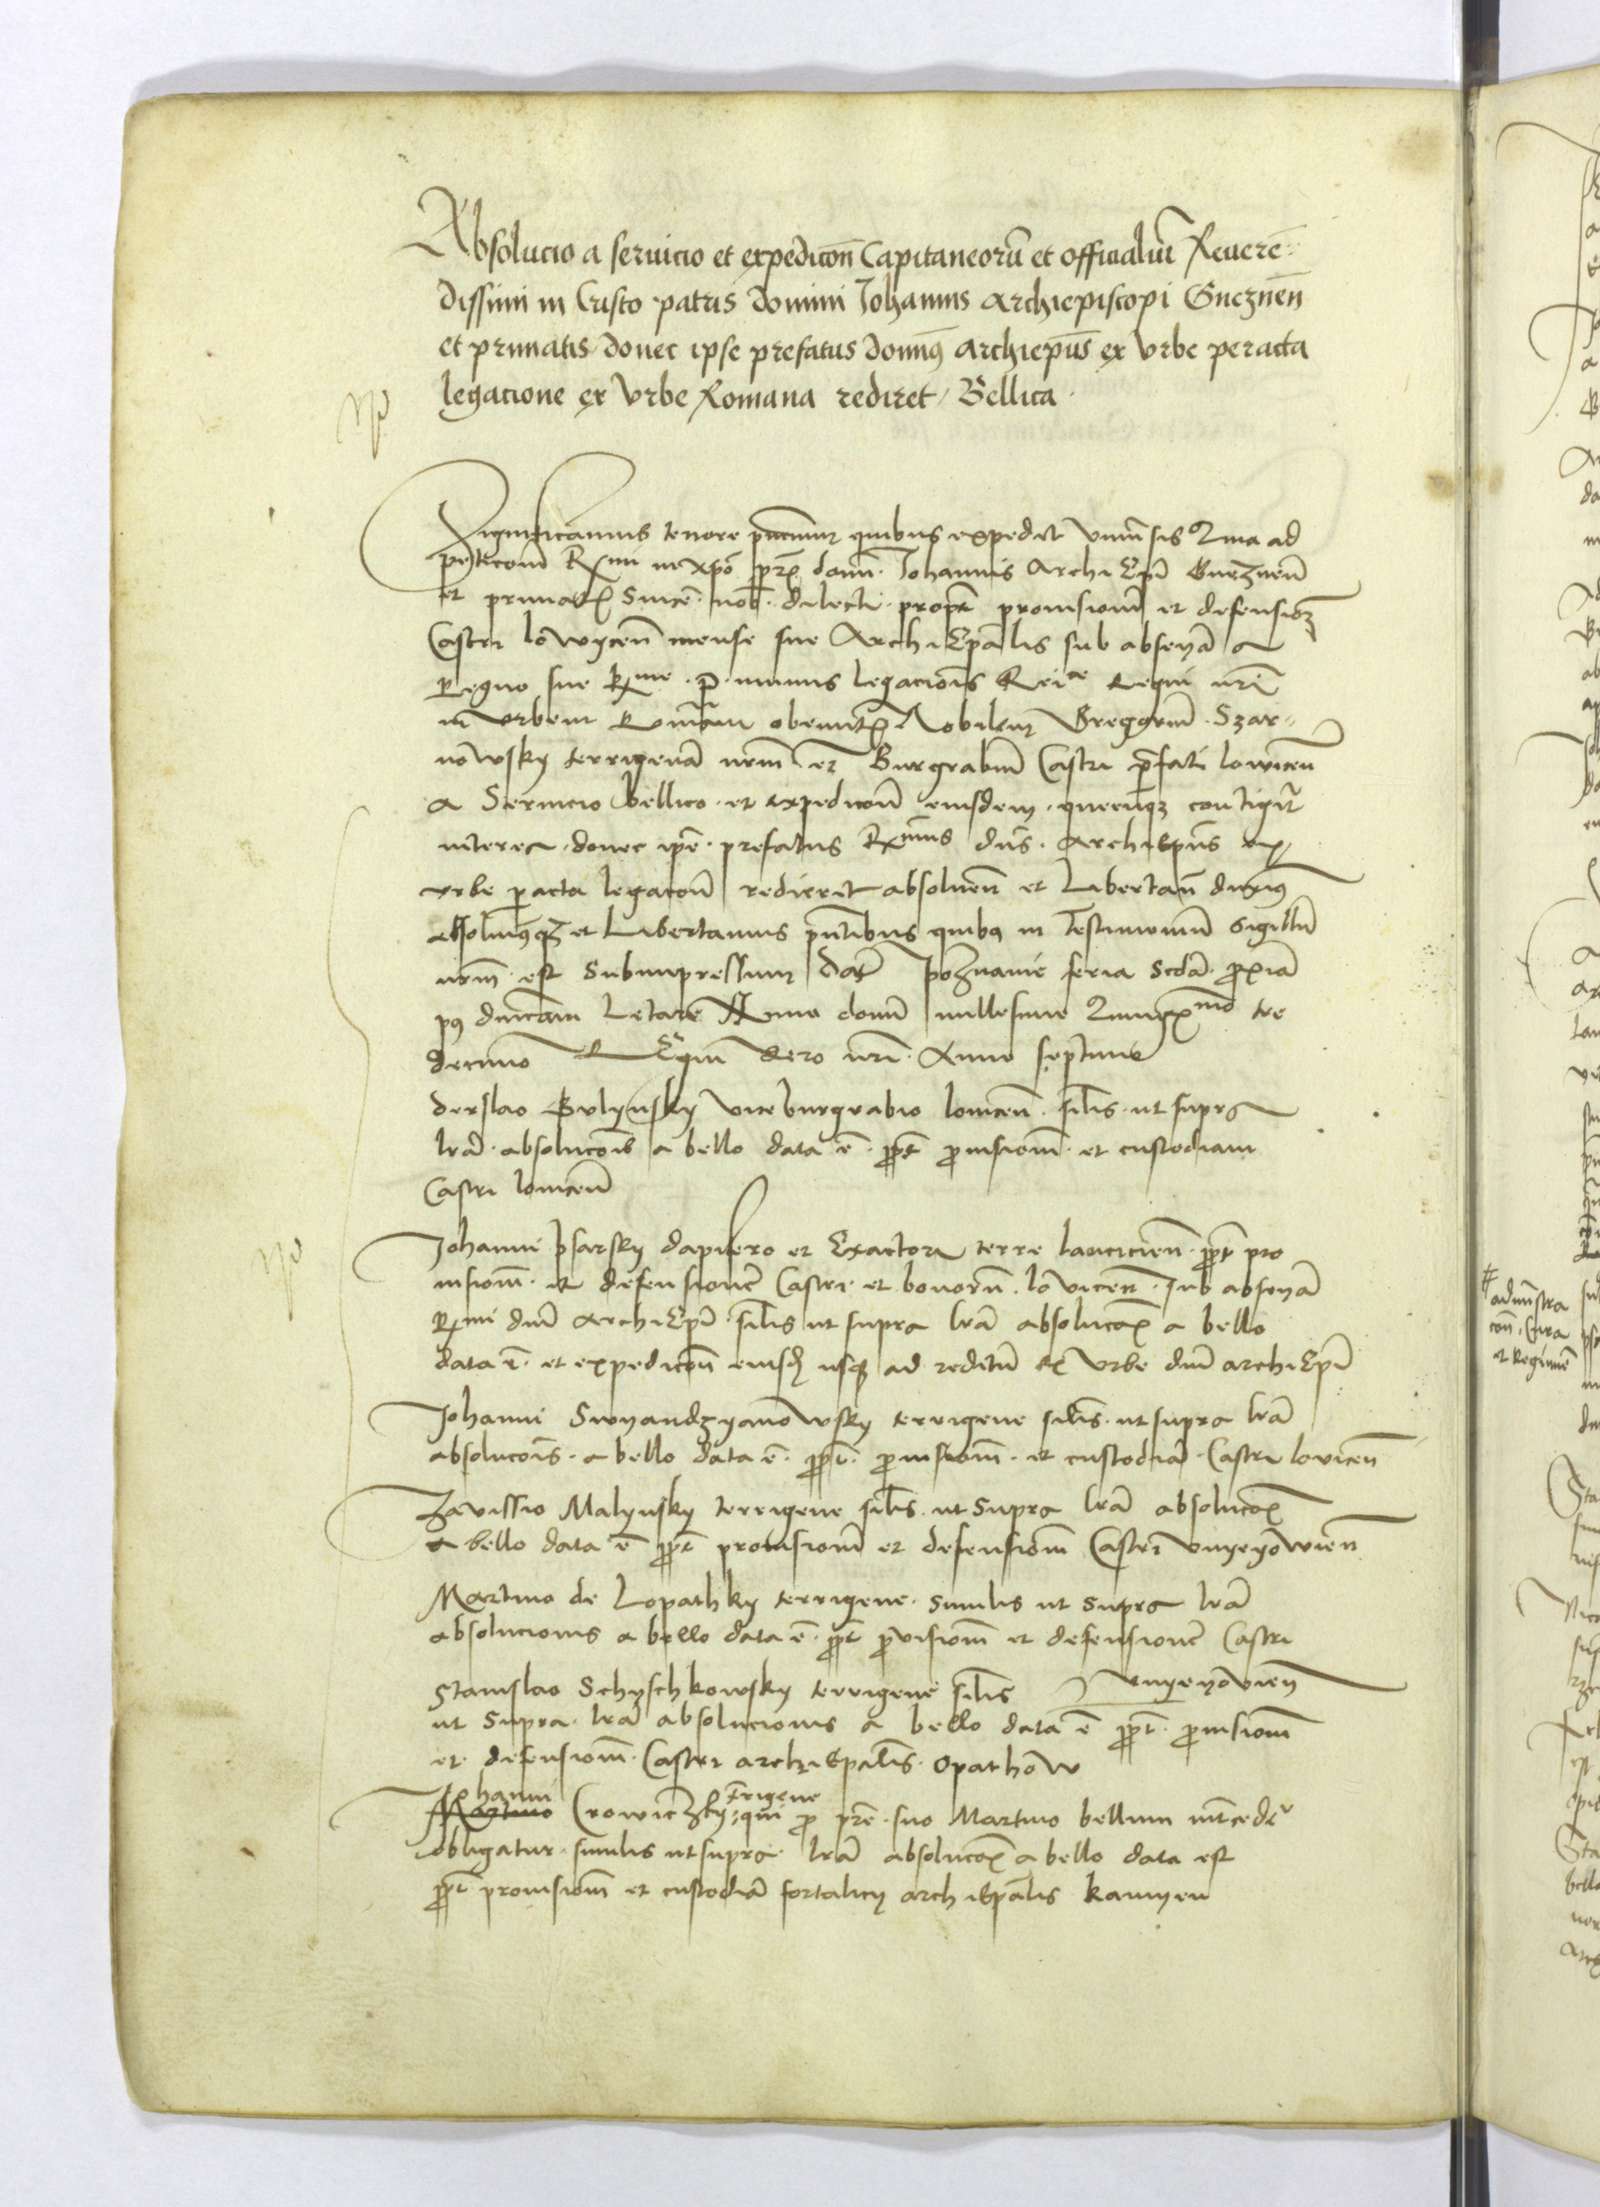 Absolucio a seruicio et expedicon̄ Capitaneorū et officialiū Reueren
dissimi in Cristo patris domini Johannis Archiepiscopi Gneznen̄
et primatis donec ipse prefatus domin9 Archiepūs ex Vrbe peracta
legacione ex Vrbe Romana rediret / Bellica
Significamus tenore pn̄cium quibus expedit vniu̅sis Quia ad
peticon̄ Rxmi in xpō pr̄is domī Johannis Archi Ep̄i Gneznen̄
et primatis Sincē nob dilecti propt̄ prouisionē et defensionē
Castri lowycen̄ mense sue Archi Ep̄alis sub absencā a
Regno sue Rxme p̄ munus legacionis Reice Regni nr̄i
in vrbem Romanam obeuntis Nobilem Gregoriū Szar
nowsky terrigenā nr̄m et Burgrabiū Castri prefati lowicen̄
a Seruicio bellico et expedicon̄ eiusdem quecūqz contigerit
interea donec ipē prefatus Rxmus dn̄s Archiepūs ex
vrbe peracta legacon̄ redierit absoluen̄ et Libertan̄ duxim9
absoluim9qz et Libertamus pn̄tibus quibus in Testimonium Sigillū
nr̄m est Subimpressum Dat̄ Poznanie feria Scdā proximā
p9 dnicam Letare Anno domī millesimo Quingexmo tre
decimo Regni vero nr̄i Anno septimo
derslao Bulynsky viceburgrabio lowicen̄ sil̄is ut supra
lr̄a absolucōis a bello data ē propt̄ prouisionē et custodiam
Castri lowicen̄
Johanni Psarsky dapifero et Exactori terre lancicien̄ propt̄ pro
uisionē et defensionē Castri et bonorū lovicen̄ sub absencā
Rxmi dnī Archi Ep̄i sil̄is ut supra lr̄a absolucōis a bello
data ē et expedicon̄ eiusdē usqz ad reditū ex vrbe dnī archi Ep̄i
Johanni Swyandzyanowsky terrigene sil̄is ut supra lr̄a
absolucōis a bello data ē propt̄ prouisionē et custodiā Castri lovicen̄
Zavissio Malynsky terrigene sil̄is ut Supra lr̄a absolucōis
a bello data ē propt̄ prouisionē et defensionē Castri vnyeyowien̄
Martino de Lopathky terrigene similis ut supra lr̄a
absolucionis a bello data ē propt̄ prouisionē et defensionē Castri
vnyeyovien̄
Stanislao Schyschkowsky terrigene sil̄is
ut Supra lr̄a absolucionis a bello data ē propt̄ prouisionē
et defensionē Castri archi Ep̄alis Opathow
Johanni terrigene
Martino Crowiczky qui pro pr̄e suo Martino bellum
obligatur similis ut supra lr̄a absolucōis a bello data est
propt̄ prouisionē et custodiā fortalicij archi Ep̄alis Kamyen
adminstra
con̄ Cura
et Regimē